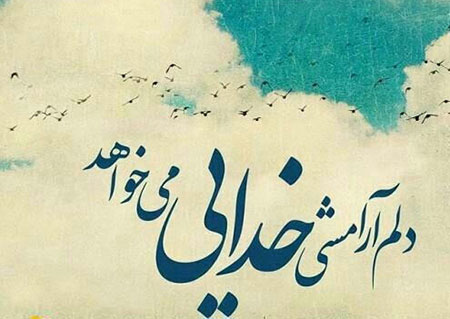 دلم آرامشی خدایی می خواهد